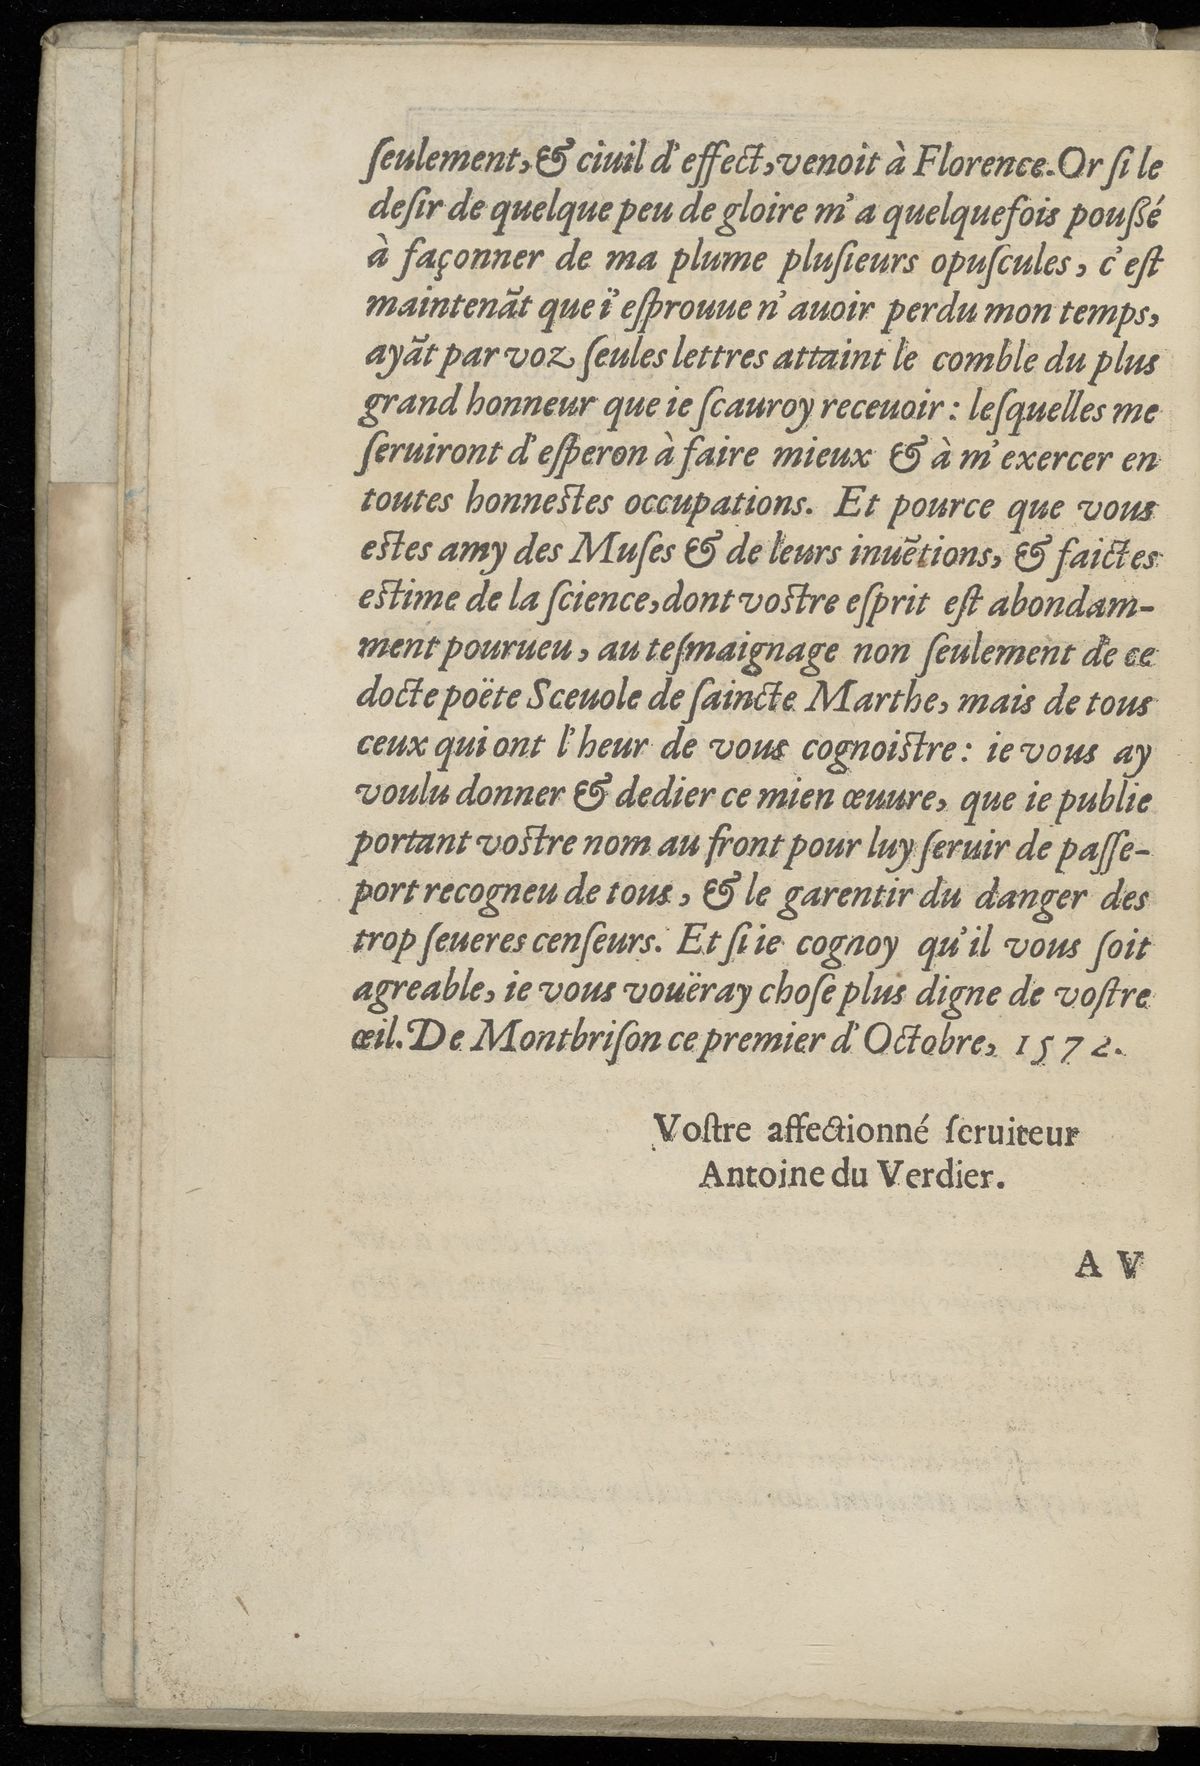 ſeulement, & ciuil d'effect, venoit à Florence. Or ſi le
deſir de quelque peu de gloire m'a quelquefois pouſſé
à façonner de ma plume pluſieurs opuſcules, c'eſt
maintenãt que i'eſprouue n'auoir perdu mon temps,
ayãt par voz ſeules lettres attaint le comble du plus
grand honneur que ie ſcauroy receuoir : leſquelles me
ſeruiront d'eſperon à faire mieux & à m'exercer en
toutes honneſtes occupations. Et pource que vous
eſtes amy des Muſes & de leurs inuẽtions, & faictes
eſtime de la ſcience, dont voſtre eſprit eſt abondam-
ment pourueu, au teſmaignage non ſeulement de ce
docte poëte Sceuole de ſaincte Marthe, mais de tous
ceux qui ont l'heur de vous cognoiſtre : ie vous ay
voulu donner & dedier ce mien œuure, que ie publie
portant voſtre nom au front pour luy ſeruir de paſſe-
port recogneu de tous, & le garentir du danger des
trop ſeueres cenſeurs. Et ſi ie cognoy qu'il vous ſoit
agreable, ie vous vouëray choſe plus digne de voſtre
œil. De Montbriſon ce premier d'Octobre, 1572.
Voſtre affectionné ſeruiteur
Antoine du Verdier.
A V